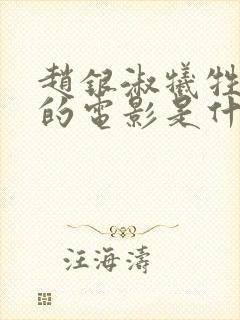 趙銀淑犧牲
的電影是什
汪海濤